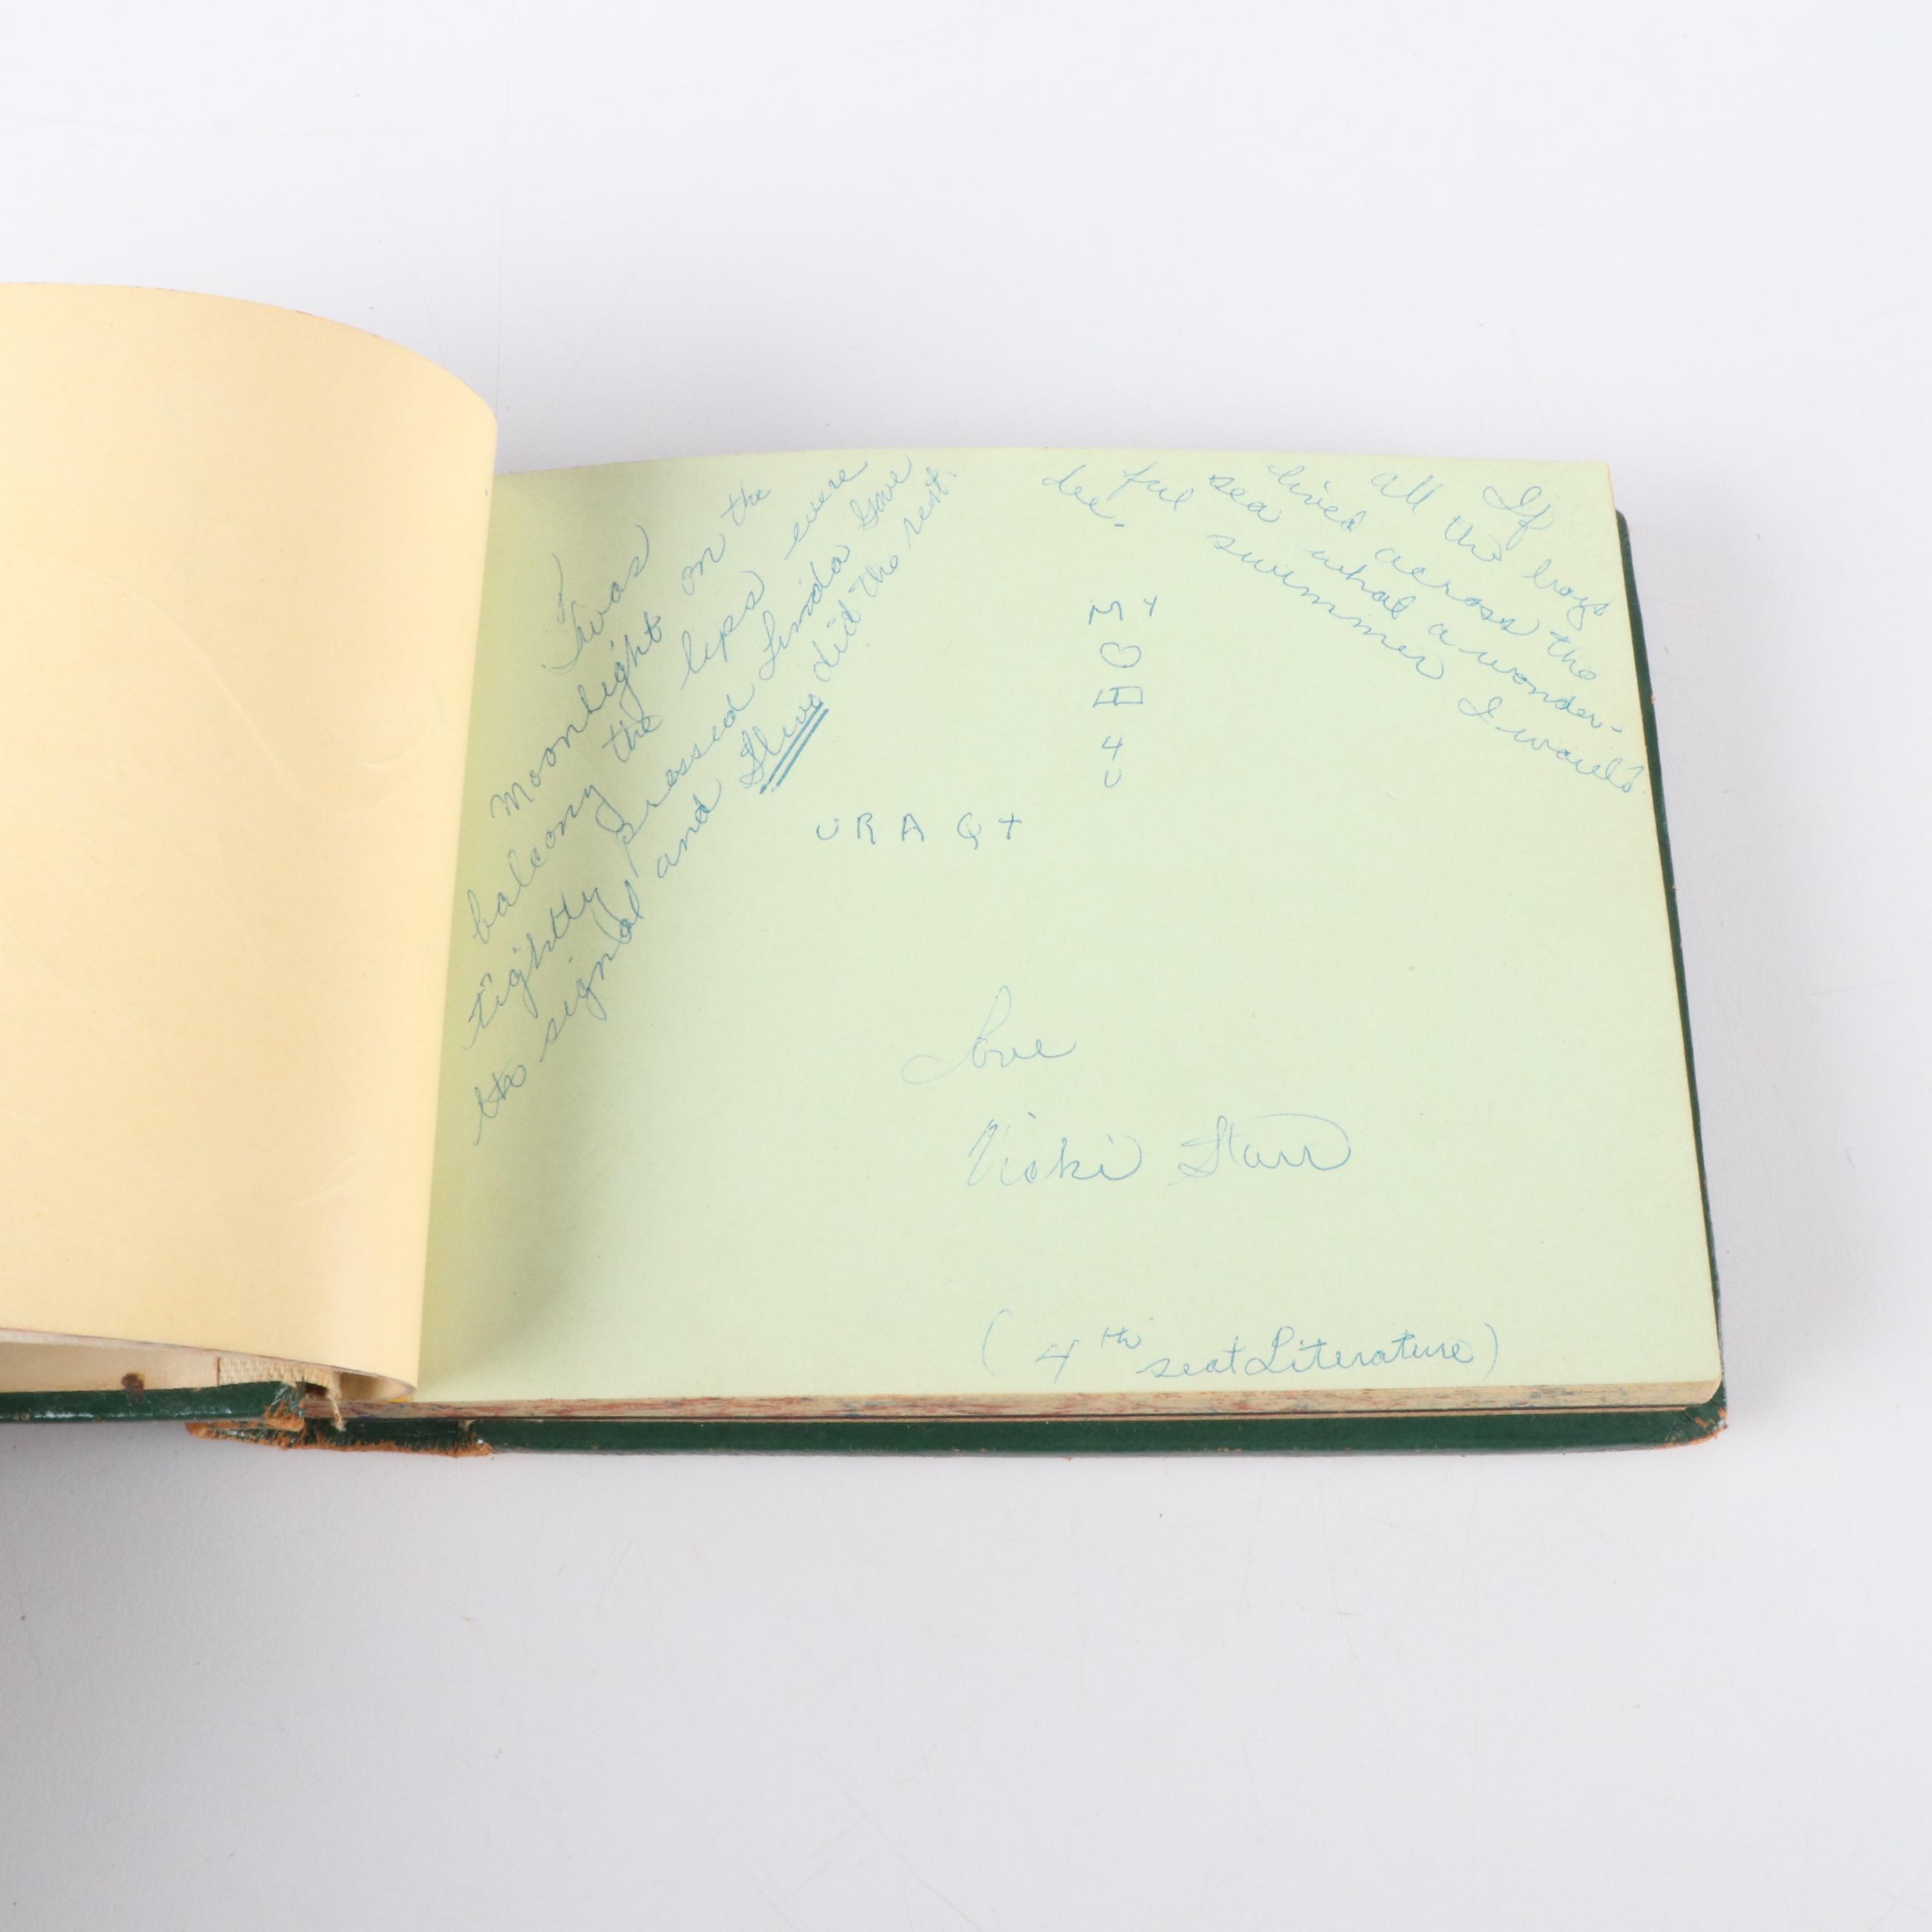 Twas
moonlight on the
balcony the lips were
tightly pressed Linda Gave
the signal and Steve did the rest.
If
all the boys
lived across the
sea what a wonder-
ful swimmer I would
bee.
MY
4
U
U R A Q T
Love
Vicki Starr
(4th seat Literature)